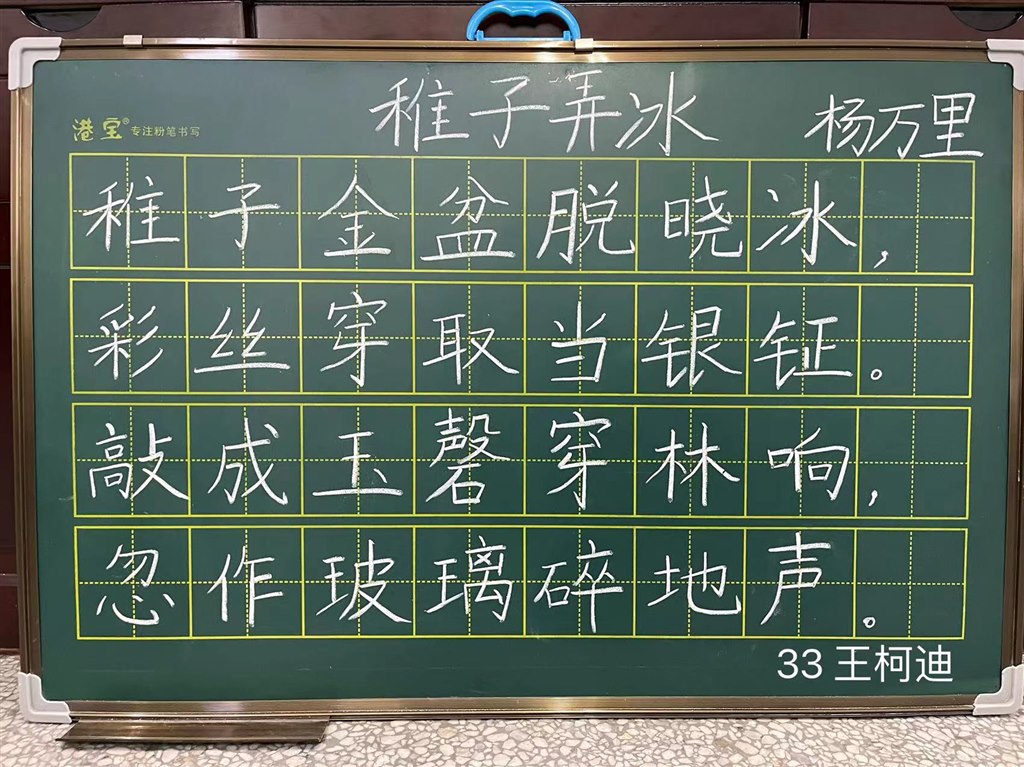 稚子弄冰 杨万里
港宝® 专注粉笔书写
稚子金盆脱晓冰,
彩丝穿取当银钲。
敲成玉磬穿林响,
忽作玻璃碎地声。
33 王柯迪